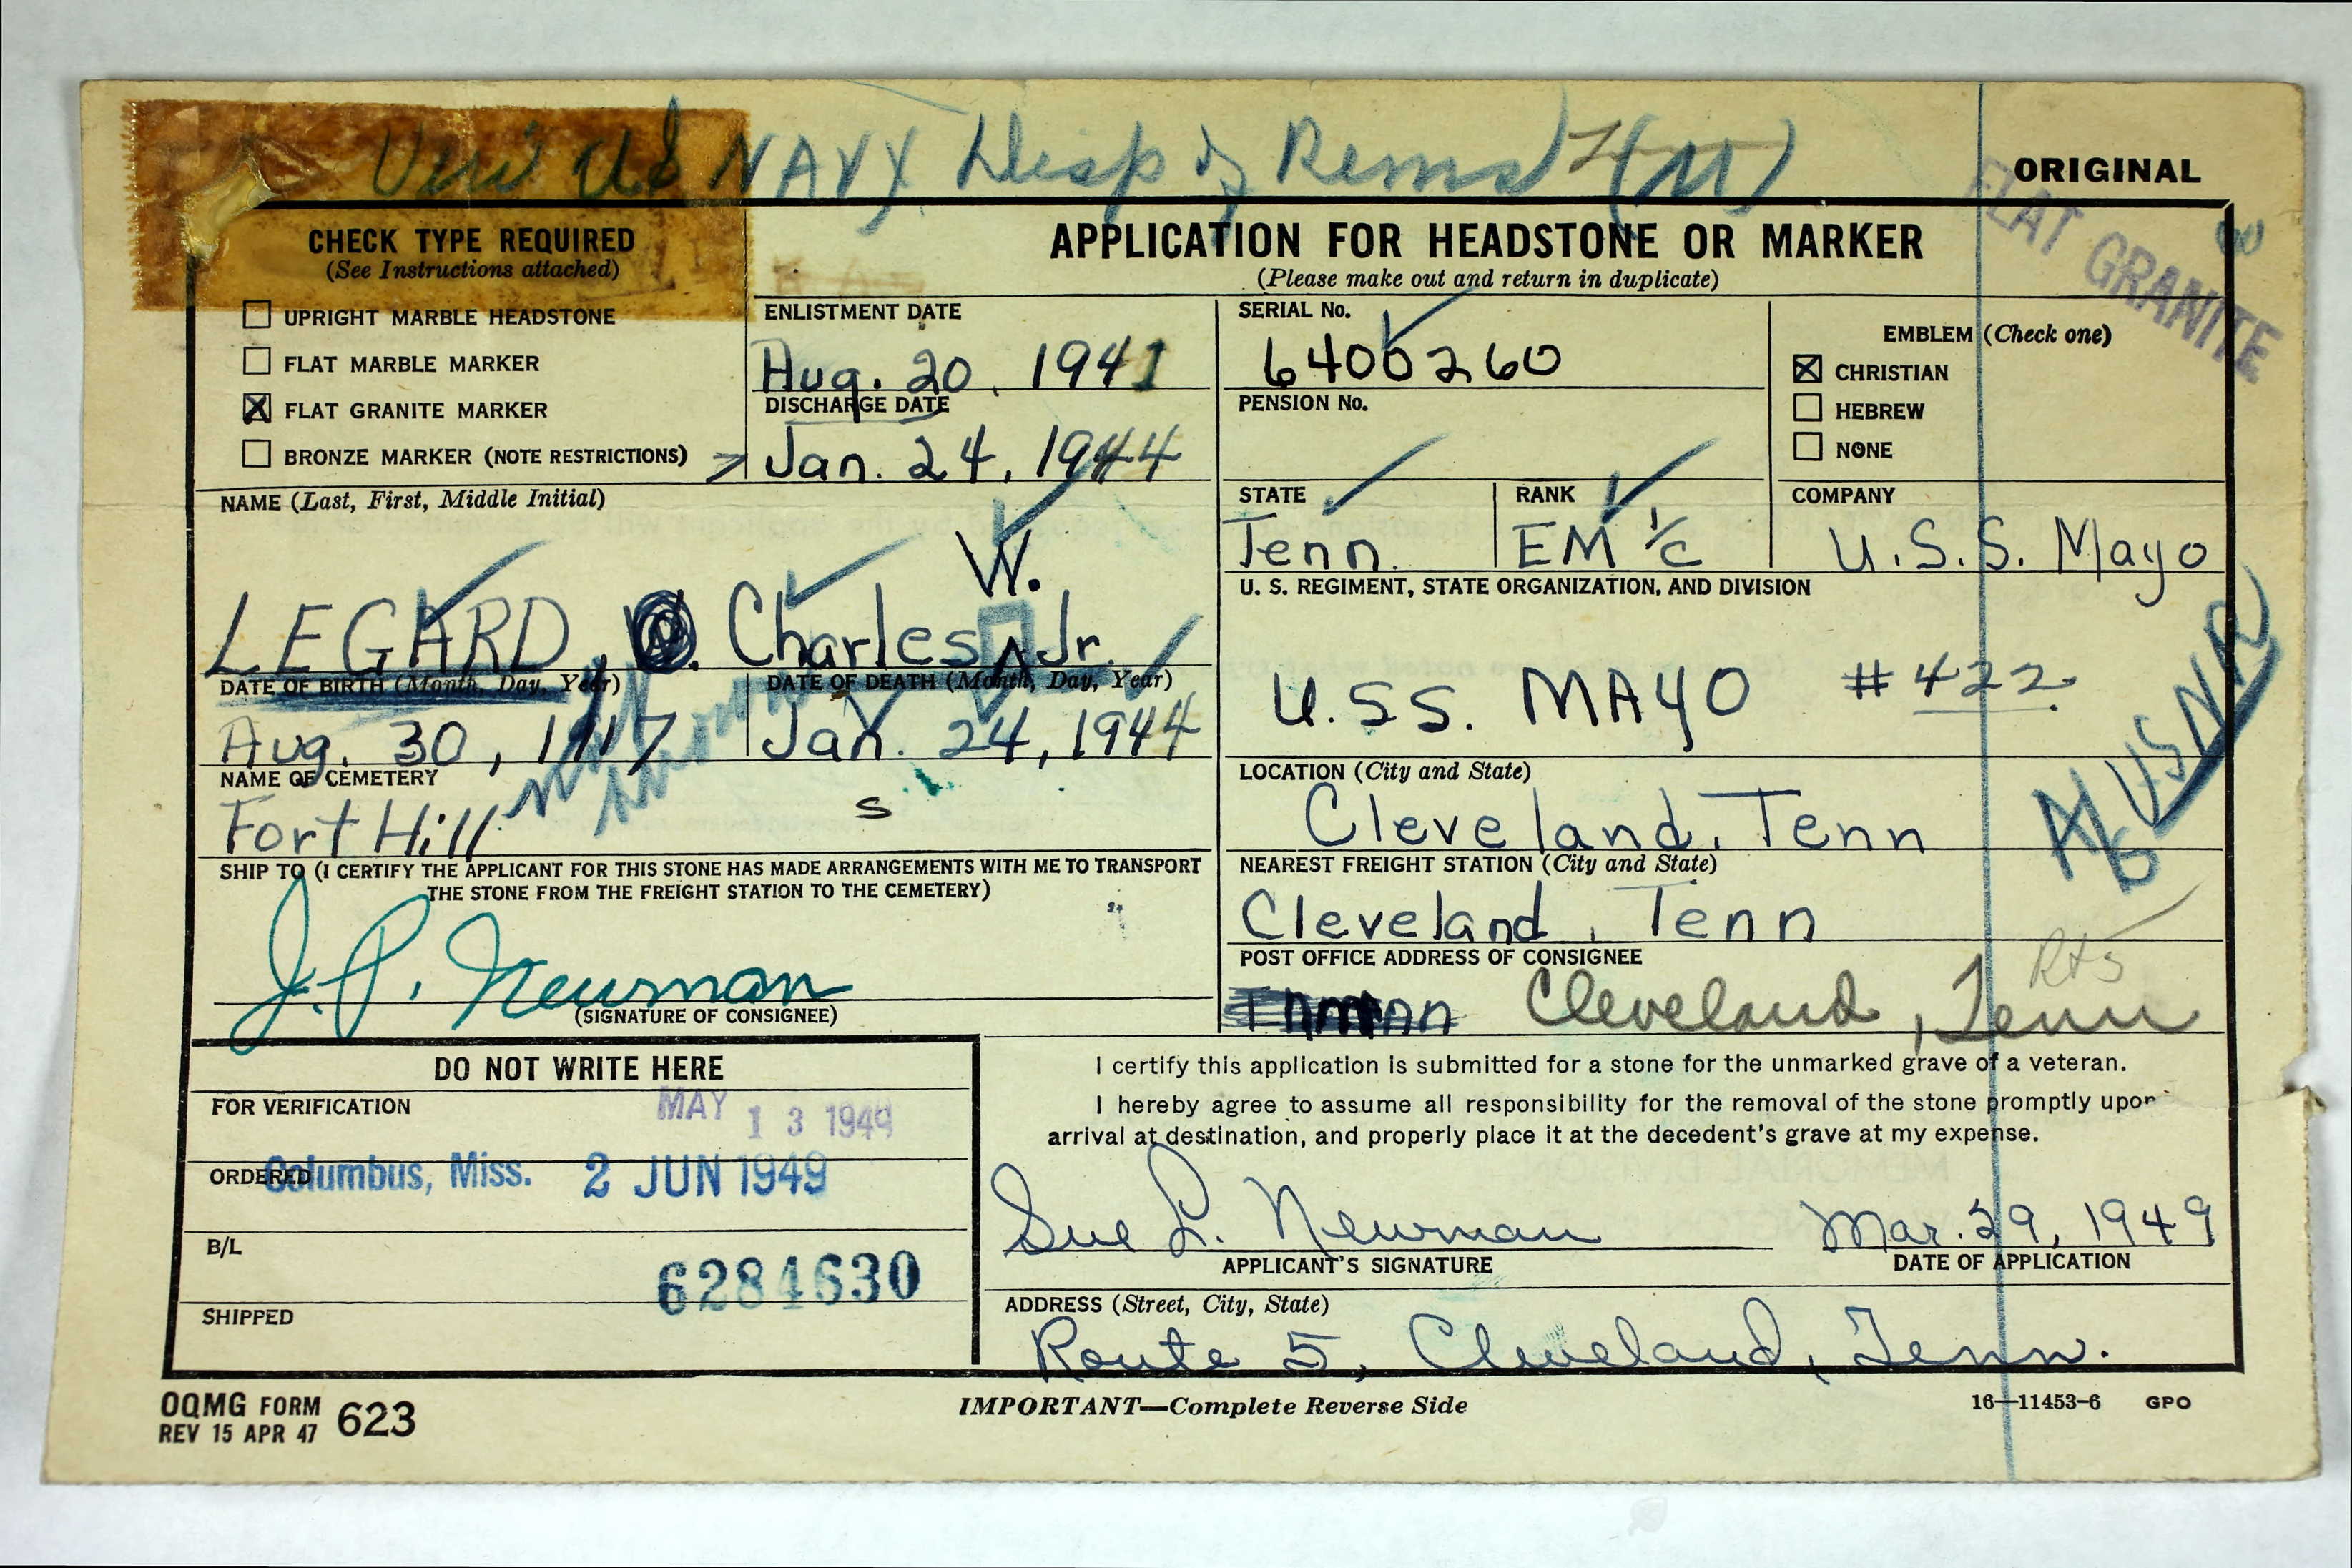 NAVY Disp of Rems (M)
ORIGINAL
FLAT GRANITE
CHECK TYPE REQUIRED
(See Instructions attached)
☐ UPRIGHT MARBLE HEADSTONE
☐ FLAT MARBLE MARKER
☒ FLAT GRANITE MARKER
☐ BRONZE MARKER (NOTE RESTRICTIONS)
APPLICATION FOR HEADSTONE OR MARKER
(Please make out and return in duplicate)
ENLISTMENT DATE
Aug. 20, 1941
DISCHARGE DATE
Jan. 24, 1944
SERIAL No.
6400260
PENSION No.
EMBLEM (Check one)
☒ CHRISTIAN
☐ HEBREW
☐ NONE
NAME (Last, First, Middle Initial)
W.
LEGARD, Charles Jr.
STATE
Tenn.
RANK
EM 1/c
COMPANY
U.S.S. Mayo
U. S. REGIMENT, STATE ORGANIZATION, AND DIVISION
U.S.S. MAYO #422
USNR
DATE OF BIRTH (Month, Day, Year)
Aug. 30, 1917
DATE OF DEATH (Month, Day, Year)
Jan. 24, 1944
NAME OF CEMETERY
Fort Hill
S
LOCATION (City and State)
Cleveland, Tenn
SHIP TO (I CERTIFY THE APPLICANT FOR THIS STONE HAS MADE ARRANGEMENTS WITH ME TO TRANSPORT
THE STONE FROM THE FREIGHT STATION TO THE CEMETERY)
J. P. Newman
(SIGNATURE OF CONSIGNEE)
NEAREST FREIGHT STATION (City and State)
Cleveland, Tenn
POST OFFICE ADDRESS OF CONSIGNEE
Rt 5
Cleveland, Tenn
DO NOT WRITE HERE
FOR VERIFICATION
MAY 13 1949
ORDERED
Columbus, Miss. 2 JUN 1949
B/L
6284630
SHIPPED
I certify this application is submitted for a stone for the unmarked grave of a veteran.
I hereby agree to assume all responsibility for the removal of the stone promptly upon
arrival at destination, and properly place it at the decedent's grave at my expense.
Sue L. Newman Mar. 29, 1949
APPLICANT'S SIGNATURE DATE OF APPLICATION
ADDRESS (Street, City, State)
Route 5, Cleveland, Tenn.
OQMG FORM 623
REV 15 APR 47
IMPORTANT—Complete Reverse Side
16—11453-6 GPO